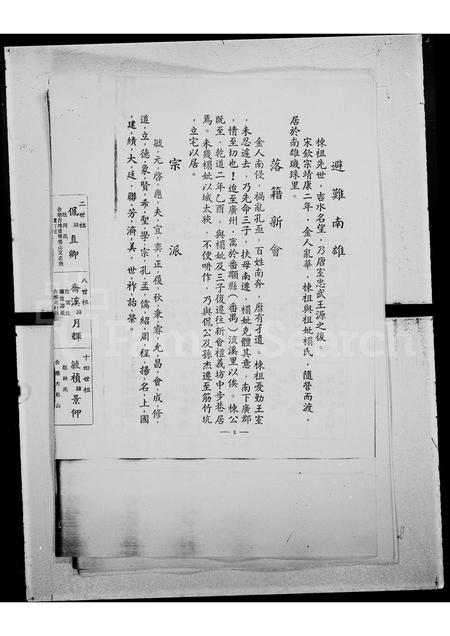 避難南雄
棟祖先世，吉水名望，乃唐室忠武王源之後。
宋欽宗靖康二年，金人亂華，棟祖與祖妣楊氏，隨營而渡，
居於南雄璣珠里。
落籍新會
金人南侵，禍亂孔亟，百姓南奔，靡有孑遺。棟祖憂勤王室
，未忍遽去，乃先命三子，扶母南遷，楊妣克體其意，南下廣郡
，情至切也！迨至廣州，寓於番顒縣（番禺）流溪里以俟。棟公
既至，乾道二年乙酉，與楊妣及三子復遷往新會禮義坊中步巷居
焉。未幾楊妣以城太狹，不便畊作，乃與佩公及孫杰遷至筋竹坑
，立宅以居。
宗派
毓，元，啓，應，夫，宜，奕，正，履，秋，秉，睿，允，昌，會，成，修，
道，立，德，象，賢，希，聖，學，宗，孔，孟，儒，紹，周，程，揚，名，上，國
，建，績，大，廷，聯，芳，濟，美，世，祚，詒，榮。
— 2 —
二世祖
佩 直卿
八世祖
月輝
十四世祖
毓楨 景仰